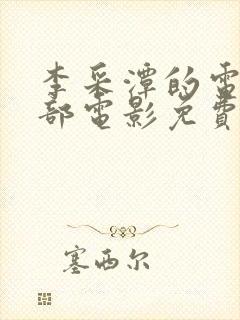 李采潭的電
部電影免費
塞西尔